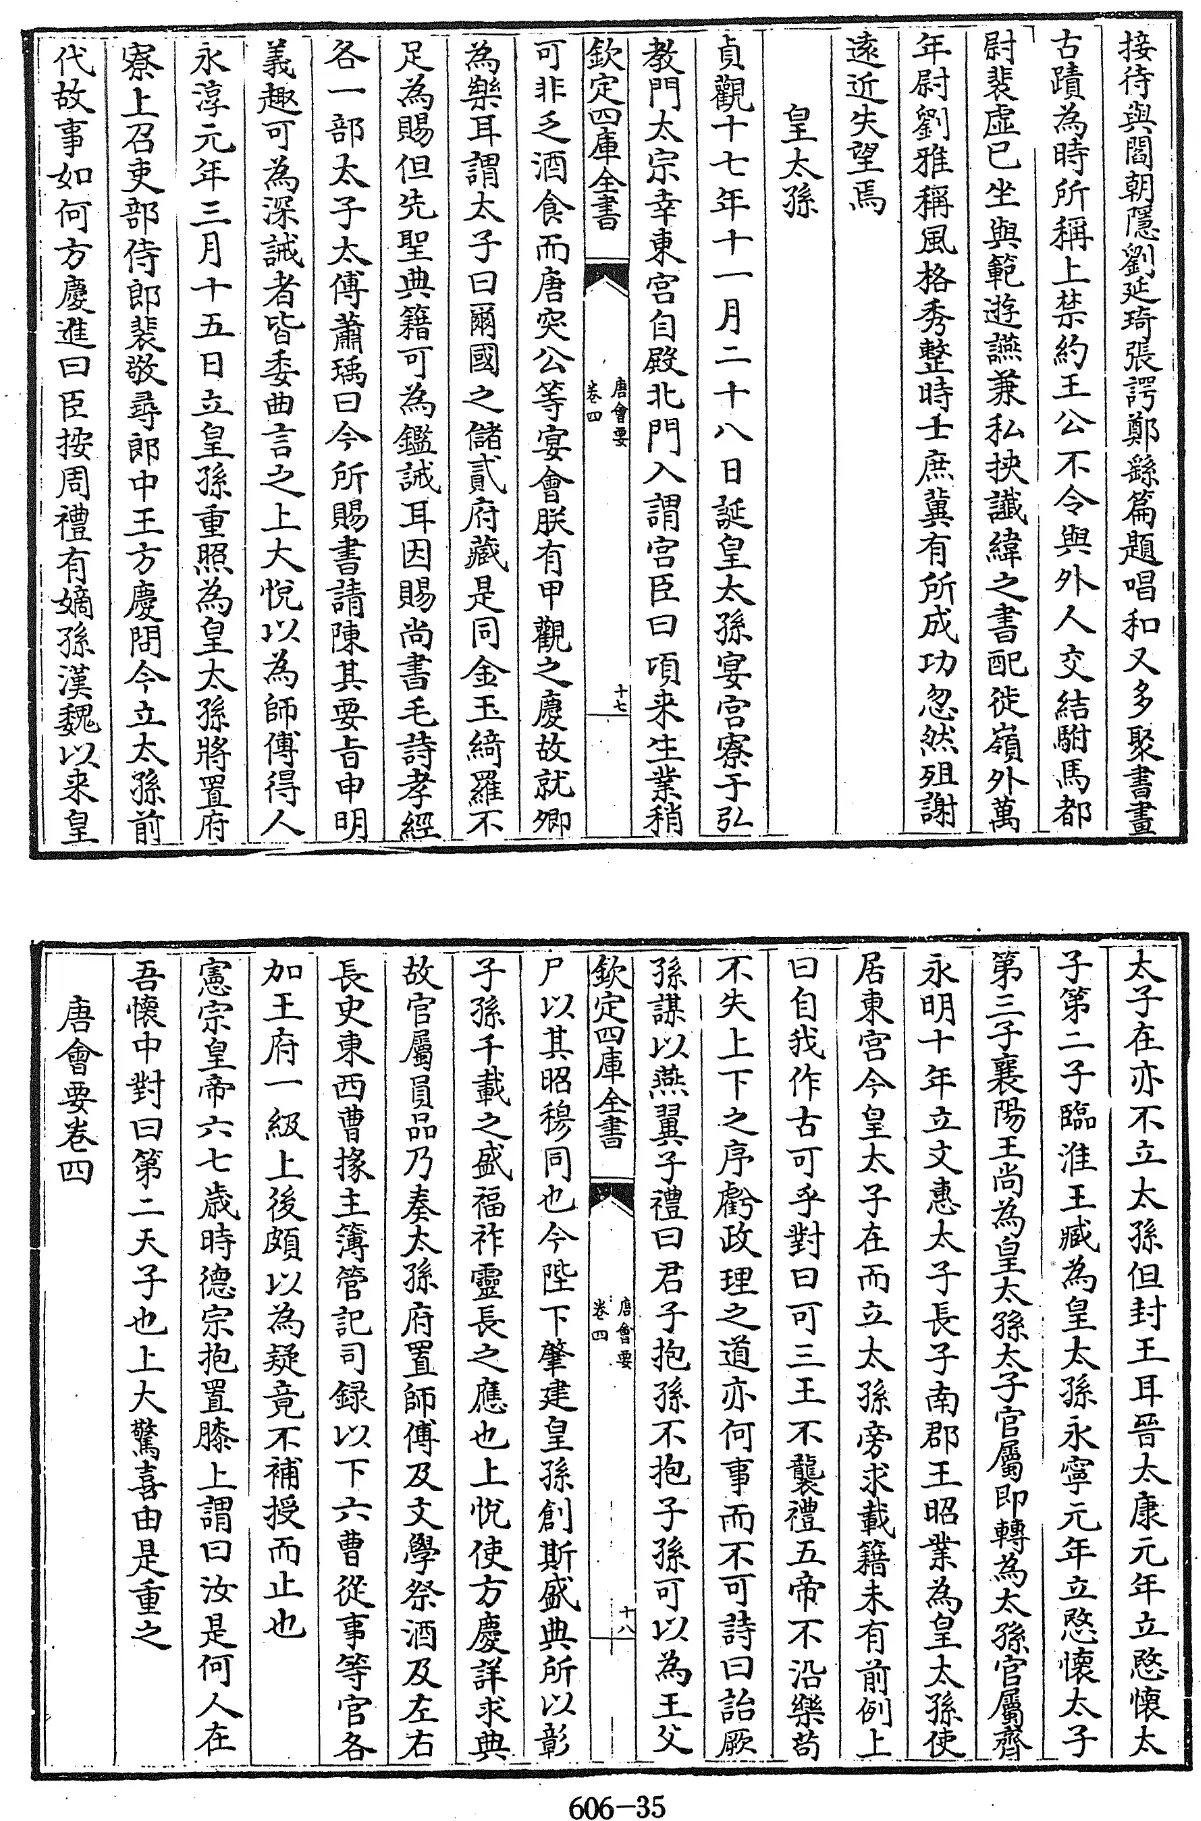 接待與閻朝隱劉延琦張諤鄭繇篇題唱和又多聚書畫
古蹟為時所稱上禁約王公不令與外人交結駙馬都
尉裴虛己坐與範遊讌兼私挾讖緯之書配徙嶺外萬
年尉劉雅稱風格秀整時士庶冀有所成功忽然殂謝
遠近失望焉
皇太孫
貞觀十七年十一月二十八日誕皇太孫宴宮寮于弘
教門太宗幸東宮自殿北門入謂宮臣曰項来生業稍
欽定四庫全書
唐會要
卷四
十七
可非乏酒食而唐突公等宴會朕有甲觀之慶故就卿
為樂耳謂太子曰爾國之儲貳府藏是同金玉綺羅不
足為賜但先聖典籍可為鑑誡耳因賜尚書毛詩孝經
各一部太子太傅蕭瑀曰今所賜書請陳其要旨申明
義趣可為深誡者皆委曲言之上大悅以為師傅得人
永淳元年三月十五日立皇孫重照為皇太孫將置府
寮上召吏部侍郎裴敬尋郎中王方慶問今立太孫前
代故事如何方慶進曰臣按周禮有嫡孫漢魏以来皇
太子在亦不立太孫但封王耳晉太康元年立愍懷太
子第二子臨淮王臧為皇太孫永寧元年立愍懷太子
第三子襄陽王尚為皇太孫太子官屬即轉為太孫官屬齊
永明十年立文惠太子長子南郡王昭業為皇太孫使
居東宮今皇太子在而立太孫旁求載籍未有前例上
曰自我作古可乎對曰可三王不襲禮五帝不沿樂苟
不失上下之序虧政理之道亦何事而不可詩曰詒厥
孫謀以燕翼子禮曰君子抱孫不抱子孫可以為王父
欽定四庫全書
唐會要
卷四
十八
尸以其昭穆同也今陛下肇建皇孫創斯盛典所以彰
子孫千載之盛福祚靈長之應也上悅使方慶詳求典
故官屬員品乃奏太孫府置師傅及文學祭酒及左右
長史東西曹掾主簿管記司録以下六曹從事等官各
加王府一級上後頗以為疑竟不補授而止也
憲宗皇帝六七歲時德宗抱置膝上謂曰汝是何人在
吾懷中對曰第二天子也上大驚喜由是重之
唐會要卷四
606-35